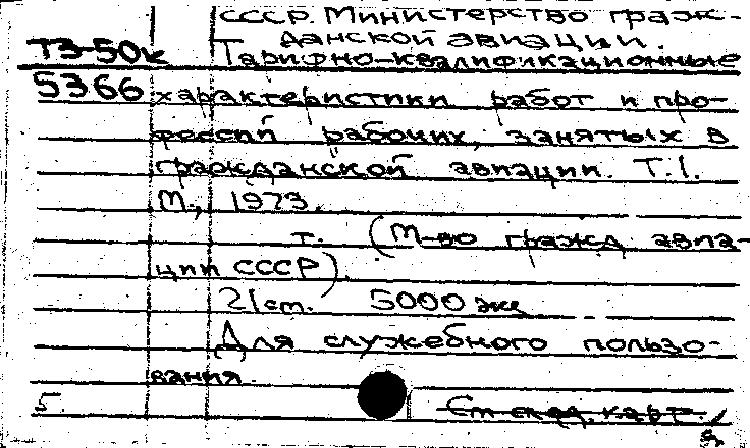 СССР. Министерство граж-
данской авиации.
ТЗ-50к Тарифно-квалификационные
5366 характеристики работ и про-
фессий рабочих, занятых в
гражданской авиации. Т.1.
М., 1973.
т. (М-во гражд. авиа-
ции СССР).
21 ст. 5000 экз
Для служебного пользо-
вания.
5 См след. карт.